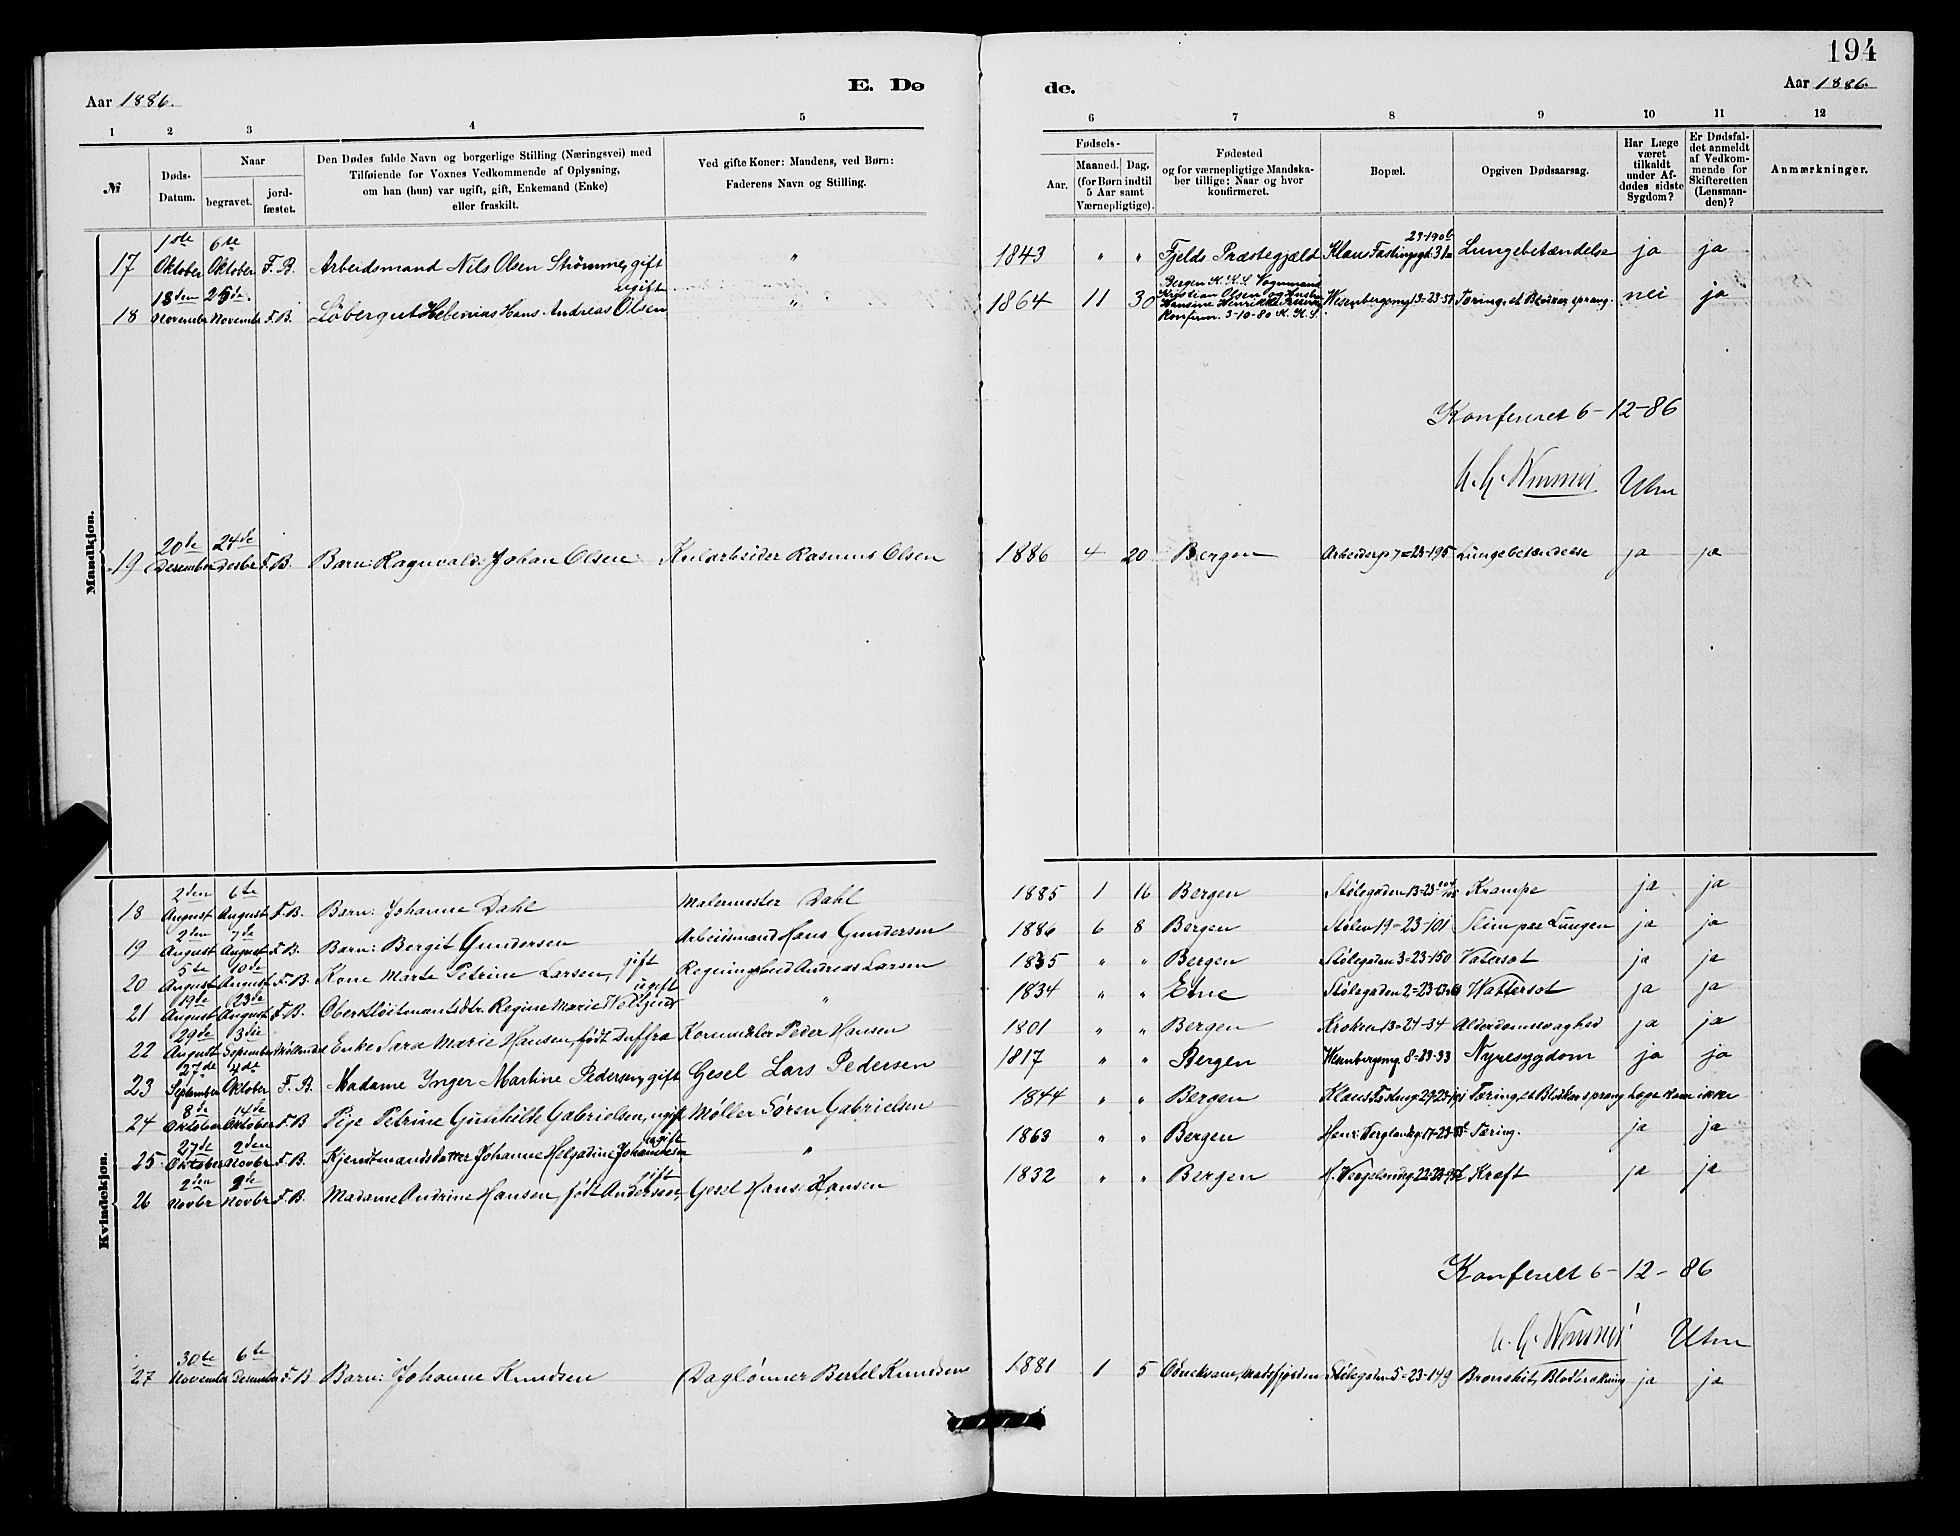 194
Aar 1886.
E. Dø
de.
Aar 1886.
1 2 3 4 5 6 7 8 9 10 11 12
№
Døds-Datum.
Naar
begravet.
jord-fæstet.
Den Dødes fulde Navn og borgerlige Stilling (Næringsvei) med
Tilføiende for Voxnes Vedkommende af Oplysning,
om han (hun) var ugift, gift, Enkemand (Enke)
eller fraskilt.
Ved gifte Koner: Mandens, ved Børn:
Faderens Navn og Stilling.
Fødsels-
Aar.
Maaned. Dag.
(for Børn indtil
5 Aar samt
Værnepligtige).
Fødested
og for værnepligtige Mandska-
ber tillige: Naar og hvor
konfirmeret.
Bopæl.
Opgiven Dødsaarsag.
Har Læge
været
tilkaldt
under Af-
dødes sidste
Sygdom?
Er Dødsfal-
det anmeldt
af Vedkom-
mende for
Skifteretten
(Lensman-
den)?
Anmærkninger.
Mandkjøn.
17 1ste Oktober 6te Oktober F. B. Arbeidsmand Nils Olsen Strømme, gift " 1843 " " Fjelds Præstegjæld Klaus Fastingsgd. 31= Lungebetændelse ja ja
18 18den November 25de November F. B. Løbergut Helenius Hans Andreas Olsen ugift " 1864 11 30 Bergen K. K. S. Vognmand Kristian Olsen og Hustru Hansine Henrikke Konfirm. 3-10-80 K. K. S. 13-23-51 Tæring, et Blodkar sprang. nei ja
Konfereret 6-12-86
Uhm
19 20de Desember 24de Desbr F. B. Barn: Ragnvald Johan Olsen Rasmus Olsen 1886 4 20 Bergen Arbeiderp 7=23-195 Lungebetændelse ja ja
Kvindekjøn.
18 2den August 6te August F. B. Barn: Johanne Dahl Malermester Dahl 1885 1 16 Bergen Stølegaden 13-23 Krampe ja ja
19 2den August 7de August F. B. Barn: Bergit Gundersen Arbeidsmand Hans Gundersen 1886 6 8 Bergen Stølen 19=23-101 Slim paa Lungen ja ja
20 5te August 10de August F. B. Kone Marte Petrine Larsen, gift Andreas Larsen 1835 " " Bergen Stølegaden 3=23-150 Vatersot ja ja
21 19de August 23de August F. B. Regine Marie ugift " 1834 " " Etne Stølegaden 2=23 Wattersot ja ja
22 29de August 3die September Møllendal Enke Sara Marie Hansen, født Peder Hansen 1801 " " Bergen Kroken 13=24-34 Alderdomssvaghed ja ja
23 27de September 4de Oktober F. B. Madame Inger Martine Pedersen, gift Gesel Lars Pedersen 1817 " " Bergen 8=23-33 Nyresygdom ja ja
24 8de Oktober 14de Oktober F. B Pige Petrine Gunhilde Gabrielsen, ugift Møller Søren Gabrielsen 1844 " " Bergen Tæring, et Blodkar sprang Læge kom ikke
25 27de Oktober 2den Novbr F. B. Kjendtmandsdatter Johanne Helgadine Johannesen ugift " 1863 " " Bergen Tæring. ja ja
26 2den Novbr 9de Novbr F. B. Madame Andrine Hansen, født Andersen, gift Gesel Hans Hansen 1832 " " Bergen Kræft ja ja
Konfereret 6-12-86
Uhm
27 30te November 6te Desember F. B Barn: Johanne Knudsen Daglønner Bertel Knudsen 1881 1 5 Masfjorden Stølegaden 5=23-149 Bronkit, Blodbrækning ja ja